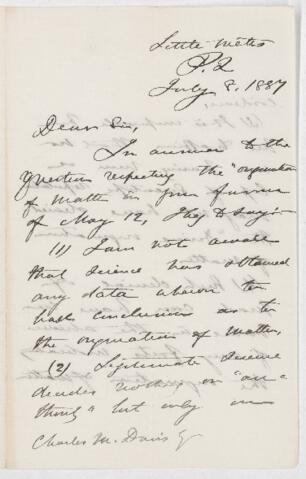 Little Metis
P.Q
July 8. 1887
Dear Sir,
In answer to the
question respecting the "origination
of matter" in your favour
of May 12, I beg to say:-
(1) I am not aware
that science has obtained
any data whereon to
base conclusions as to
the origination of matter.
(2) Legitimate science
decides nothing on "au-
thority" but only on
Charles M. Davis Esq